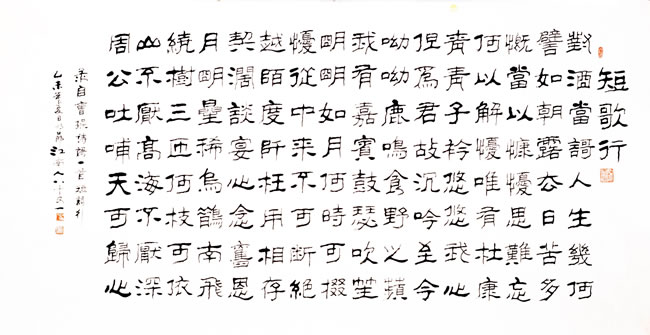 短歌行
對酒當謌人生幾何
譬如朝露去日苦多
慨當以慷懮思難忘
何以解懮唯有杜康
青青子衿悠悠我心
但為君故沉吟至今
呦呦鹿鳴食野之蘋
我有嘉賓鼓瑟吹笙
明明如月何時可掇
懮從中來不可斷絕
越陌度阡枉用相存
契闊談宴心念舊恩
月明曐稀烏鵲南飛
繞樹三匝何枝可依
山不厭高海不厭深
周公吐哺天下歸心
錄自曹操詩一首